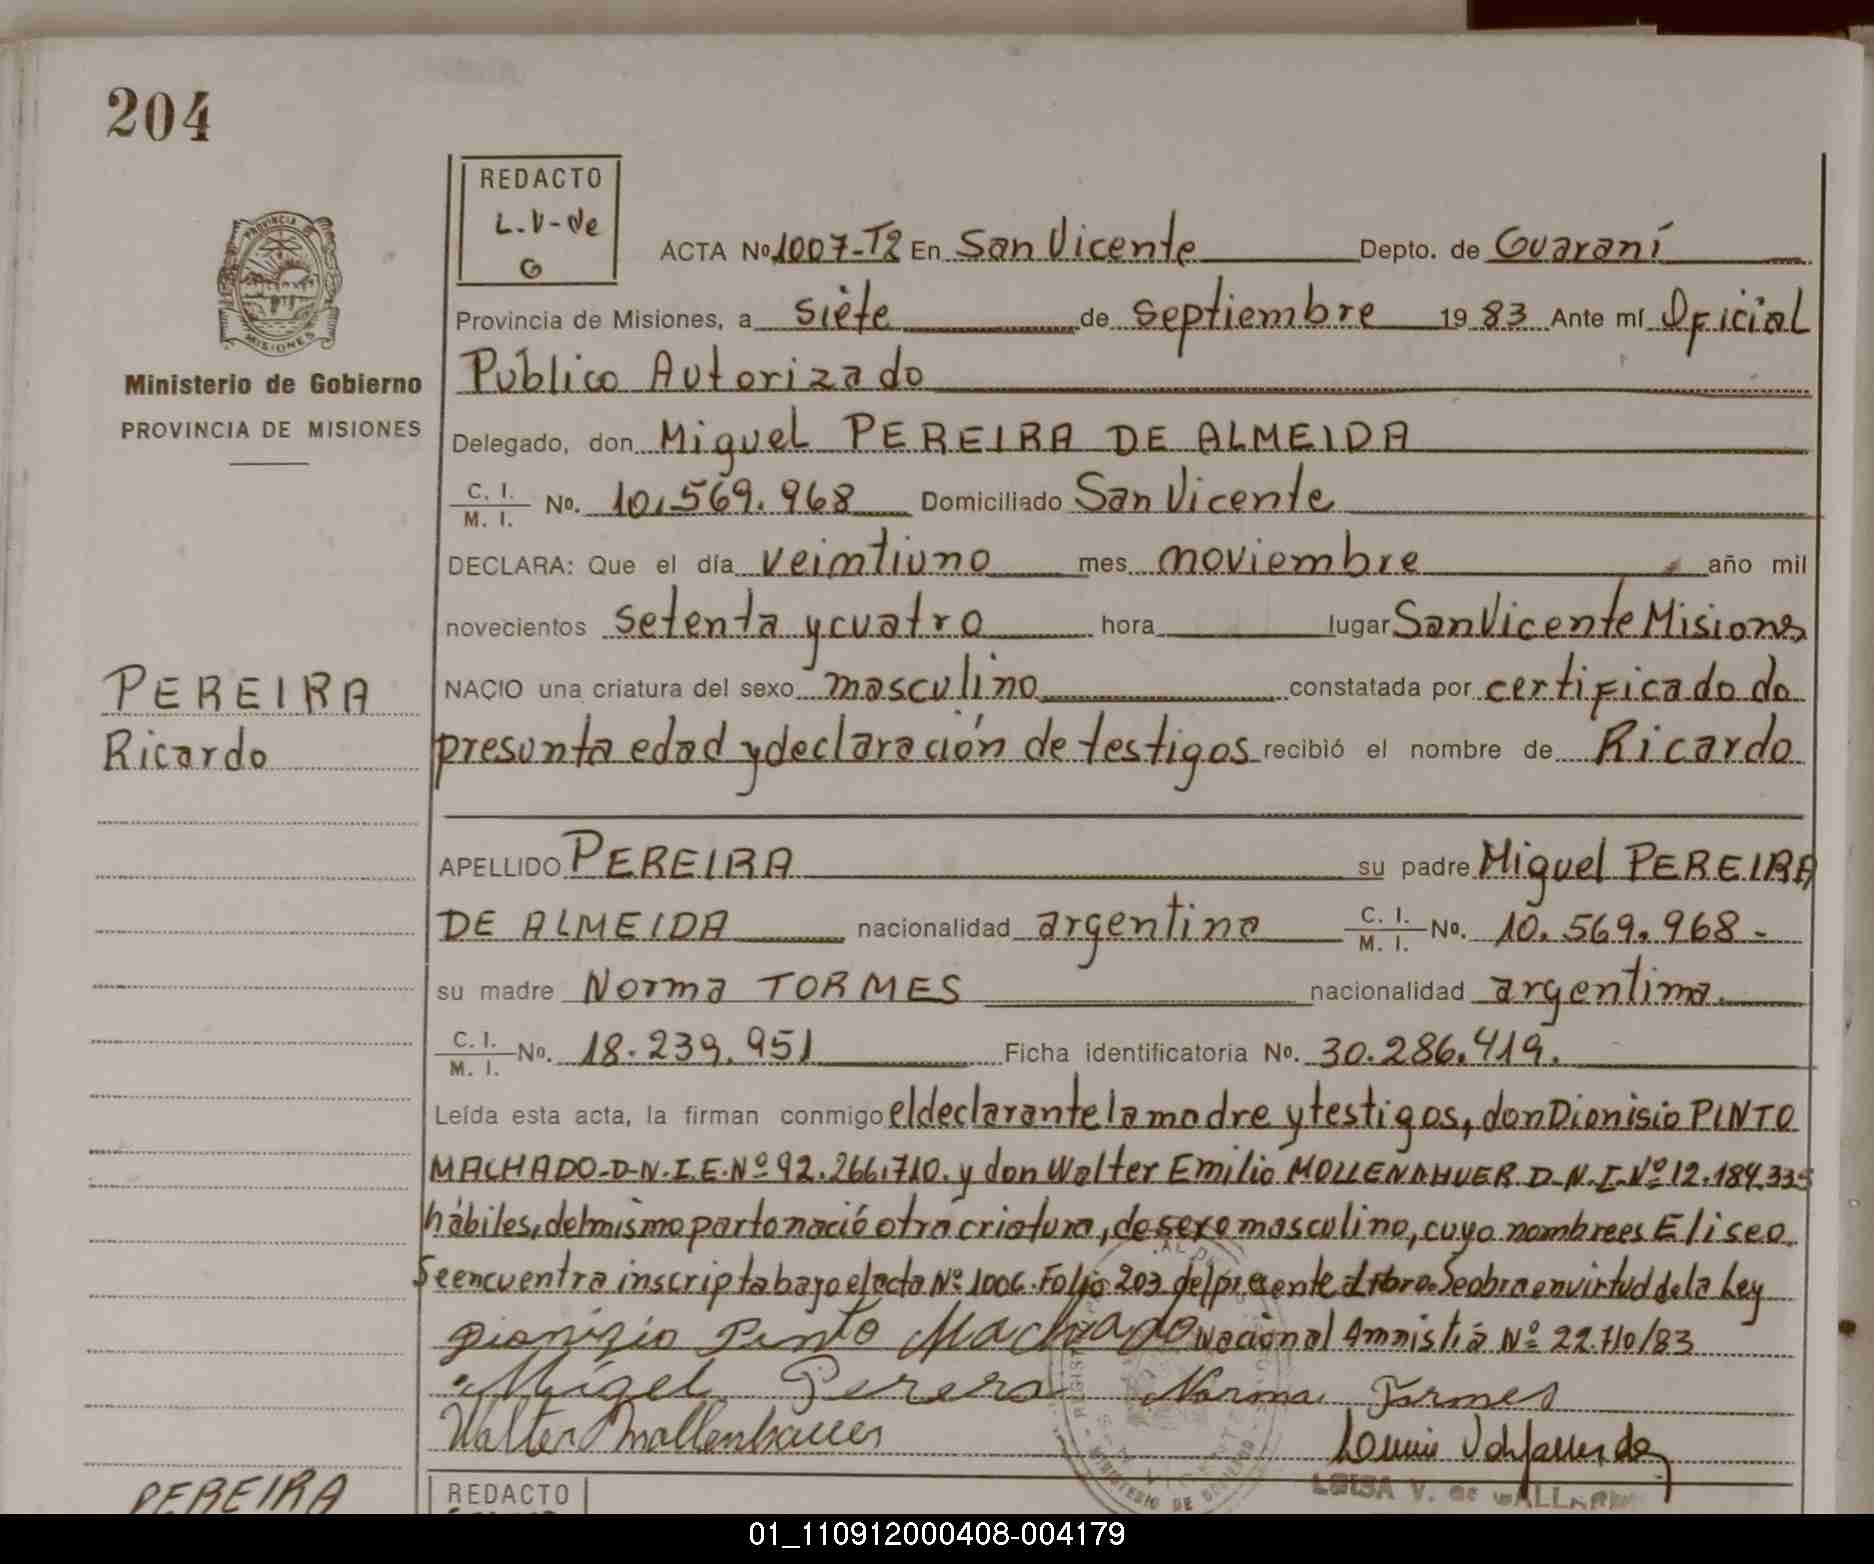 204
REDACTO
L.V-de
G
ACTA Nº 1007-T2 En San Vicente Depto. de Guaraní
Provincia de Misiones, a siete de septiembre 19 83 Ante mí Oficial
Público Autorizado
PROVINCIA
MISIONES
Ministerio de Gobierno
PROVINCIA DE MISIONES
Delegado, don Miguel PEREIRA DE ALMEIDA
C. I.
M. I. Nº. 10.569.968 Domiciliado San Vicente
DECLARA: Que el día veintiuno mes noviembre año mil
novecientos setenta y cuatro hora lugar San Vicente Misiones
PEREIRA
Ricardo
NACIO una criatura del sexo masculino constatada por certificado de
presunta edad y declaración de testigos recibió el nombre de Ricardo
APELLIDO PEREIRA su padre Miguel PEREIRA
DE ALMEIDA nacionalidad argentino C. I. M. I. Nº. 10.569.968-
su madre Norma TORMES nacionalidad argentina.
C. I. M. I. Nº. 18.239.951 Ficha identificatoria Nº. 30.286.419.
Leída esta acta, la firman conmigo el declarante la madre y testigos, don Dionisio PINTO
MACHADO-D-N.I.E.Nº 92.266.710. y don Walter Emilio MOLLENAHUER D-N.I-Nº 12.184.335
hábiles, del mismo parto nació otra criatura, de sexo masculino, cuyo nombre es Eliseo.
Se encuentra inscripta bajo el acta Nº 1006. Folio 203 del presente libro. Se obra en virtud de la Ley
Dionizio Pinto Machado Nacional Amnistía Nº 22.710/83
Migel Perera Norma Tormes
Walter Mollenhauer
LUISA V. de GALLARDO
PEREIRA
REDACTO
01_110912000408-004179